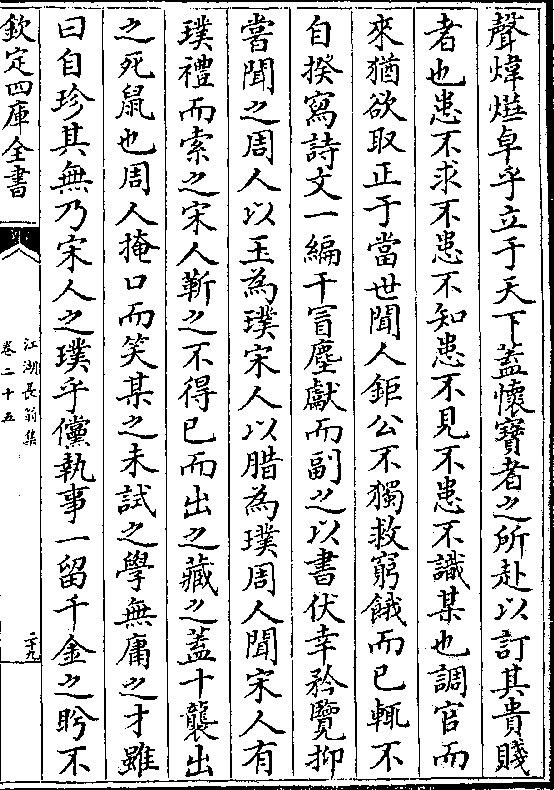 聲煒燁卓乎立于天下蓋懷寶者之所赴以訂其貴賤
者也患不求不患不知患不見不患不識某也調官而
來猶欲取正于當世聞人鉅公不獨救窮餓而已輒不
自揆寫詩文一編干冒塵獻而副之以書伏幸矜覽抑
嘗聞之周人以玉為璞宋人以腊為璞周人聞宋人有
璞禮而索之宋人靳之不得已而出之藏之蓋十襲出
之死鼠也周人掩口而笑某之未試之學無庸之才雖
曰自珍其無乃宋人之璞乎儻執事一留千金之盻不
欽定四庫全書
江湖長翁集
卷二十五
二九